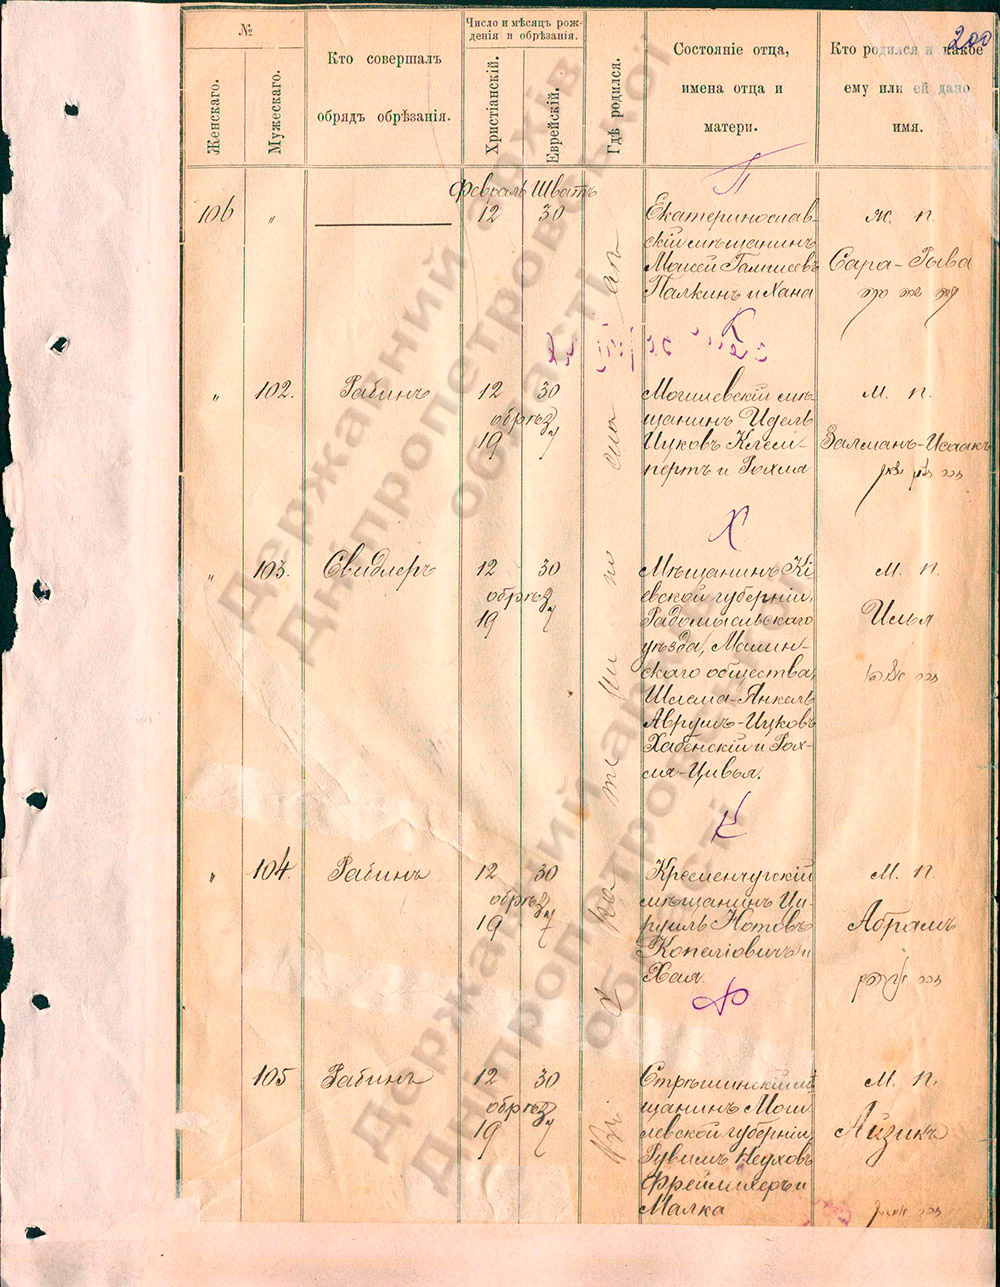 200
№
Женскаго.
Мужескаго.
Кто совершалъ
обрядъ обрѣзанія.
Число и мѣсяцъ рож-
денія и обрѣзанія.
Христіанскій.
Еврейскій.
Гдѣ родился.
Состояніе отца,
имена отца и
матери.
Кто родился и какое
ему или ей дано
имя.
Февраль Шватъ
П
106 " 12 30
Екатеринослав-
скій мѣщанинъ
Моисей
Палкинъ и Хана
ж. п.
Сара-Рыва
К
" 102. Рабинъ 12 30
обрѣз
19 7
Могилевскій мѣ-
щанинъ Идель
Ицковъ Клем-
пертъ и Рохля
м. п.
Залманъ-Исаакъ
Х
" 103. Свидлеръ 12 30
обрѣз
19 7
Мѣщанинъ Кі-
евской губерніи,
Радомысльскаго
уѣзда, Малин-
скаго общества,
Шлема-Янкель
Аврумъ-Ицковъ
Хабенскій и Рох-
ля-Цивья.
м. п.
Илья
К
" 104 Рабинъ 12 30
обрѣз
19 7
Кременчугскій
мѣщанинъ Ци-
руиль Нотовъ
Копеліовичъ и
Хая
м. п.
Абрамъ
Ф
105 Рабинъ 12 30
обрѣз
19 7
Стрѣшинскій мѣ
щанинъ Моги
левской губерніи,
Рувимъ
Фреймихеръ и
Малка
м. п.
Айзикъ
Державний архів
Дніпропетровської
області
Державний архів
Дніпропетровської
області